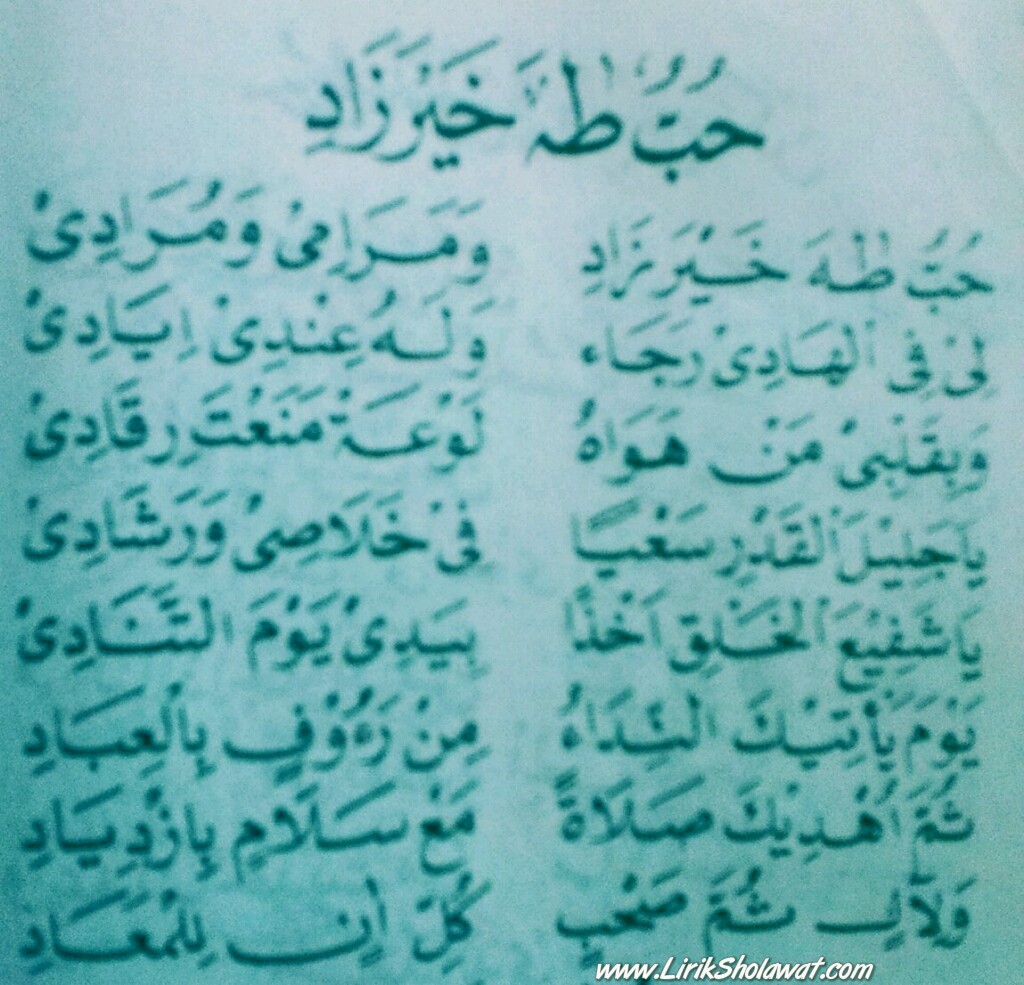 حُبُّ طٰهَ خَيْرَ زَادِ
حُبُّ طٰهَ خَيْرَ زَادِ وَمَرَامِيْ وَمُرَادِيْ
لِيْ فِي الْهَادِيْ رَجَاء وَلَهُ عِنْدِيْ اِيَادِيْ
وَبِقَلْبِيْ مَنْ هَوَاهُ لَوْعَةْ مَنَعْتَ رِقَادِيْ
يَاجَلِيْلَ الْقَدْرِ سَعْيًا فِيْ خَلَاصِيْ وَرَشَادِيْ
يَاشَفِيْعَ الْخَلِقِ اَخْذًا بِيَدِيْ يَوْمَ التَّنَادِيْ
يَوْمَ يَأْتِيْكَ النِّدَاءُ مِنْ رَءُوْفٍ بِالْعِبَادِ
ثُمَّ اُهْدِيْكَ صَلَاةً مَعْ سَلَامٍ بِازْدِيَادِ
وَلِآلِ ثُمَّ صَحْبٍ كُلِّ أٰنٍ لِلْمَعَادِ
www.LirikSholawat.com